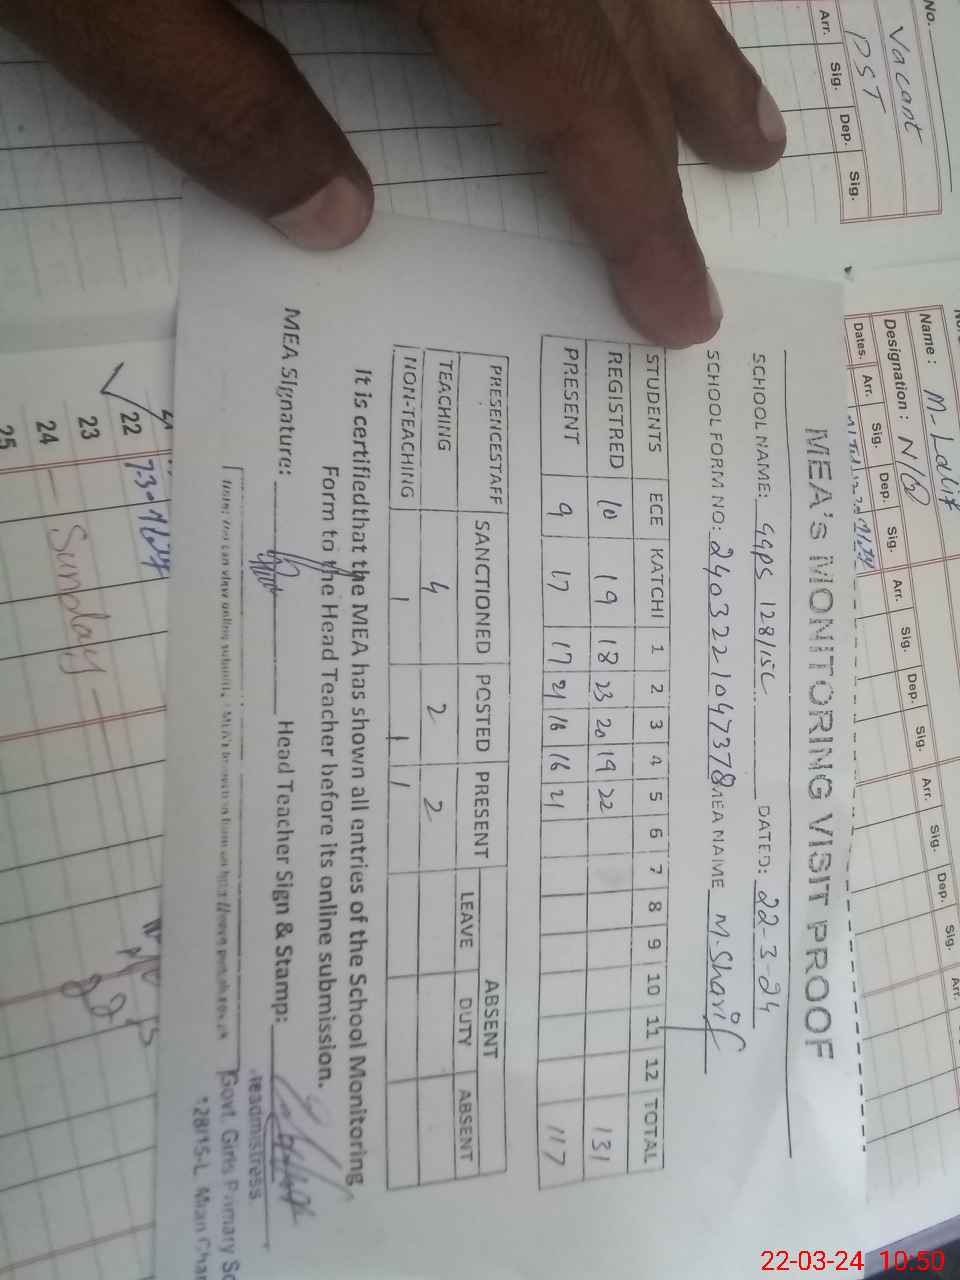 MEA's MONITORING VISIT PROOF
SCHOOL NAME: GGPS 128/15L DATED: 22-3-24
SCHOOL FORM NO: 2403221047378 MEA NAME M. Sharif
STUDENTS ECE KATCHI 1 2 3 4 5 6 7 8 9 10 11 12 TOTAL
REGISTRED 10 19 18 23 20 19 22 131
PRESENT 9 17 17 21 16 16 21 117
PRESENCESTAFF SANCTIONED POSTED PRESENT ABSENT
LEAVE DUTY ABSENT
TEACHING 4 2 2
NON-TEACHING 1 1 1
It is certifiedthat the MEA has shown all entries of the School Monitoring
Form to the Head Teacher before its online submission.
MEA Signature: Head Teacher Sign & Stamp:
Headmistress
Govt. Girls Primary Sc
128/15-L Mian Chan
No.
Vacant
PST
Arr. Sig. Dep. Sig.
Name :
Designation : N/Q
Dates. Arr. Sig. Dep. Sig. Arr. Sig. Dep. Sig. Arr. Sig. Dep. Sig. Arr.
22
23
24 Sunday
25
22-03-24 10:50